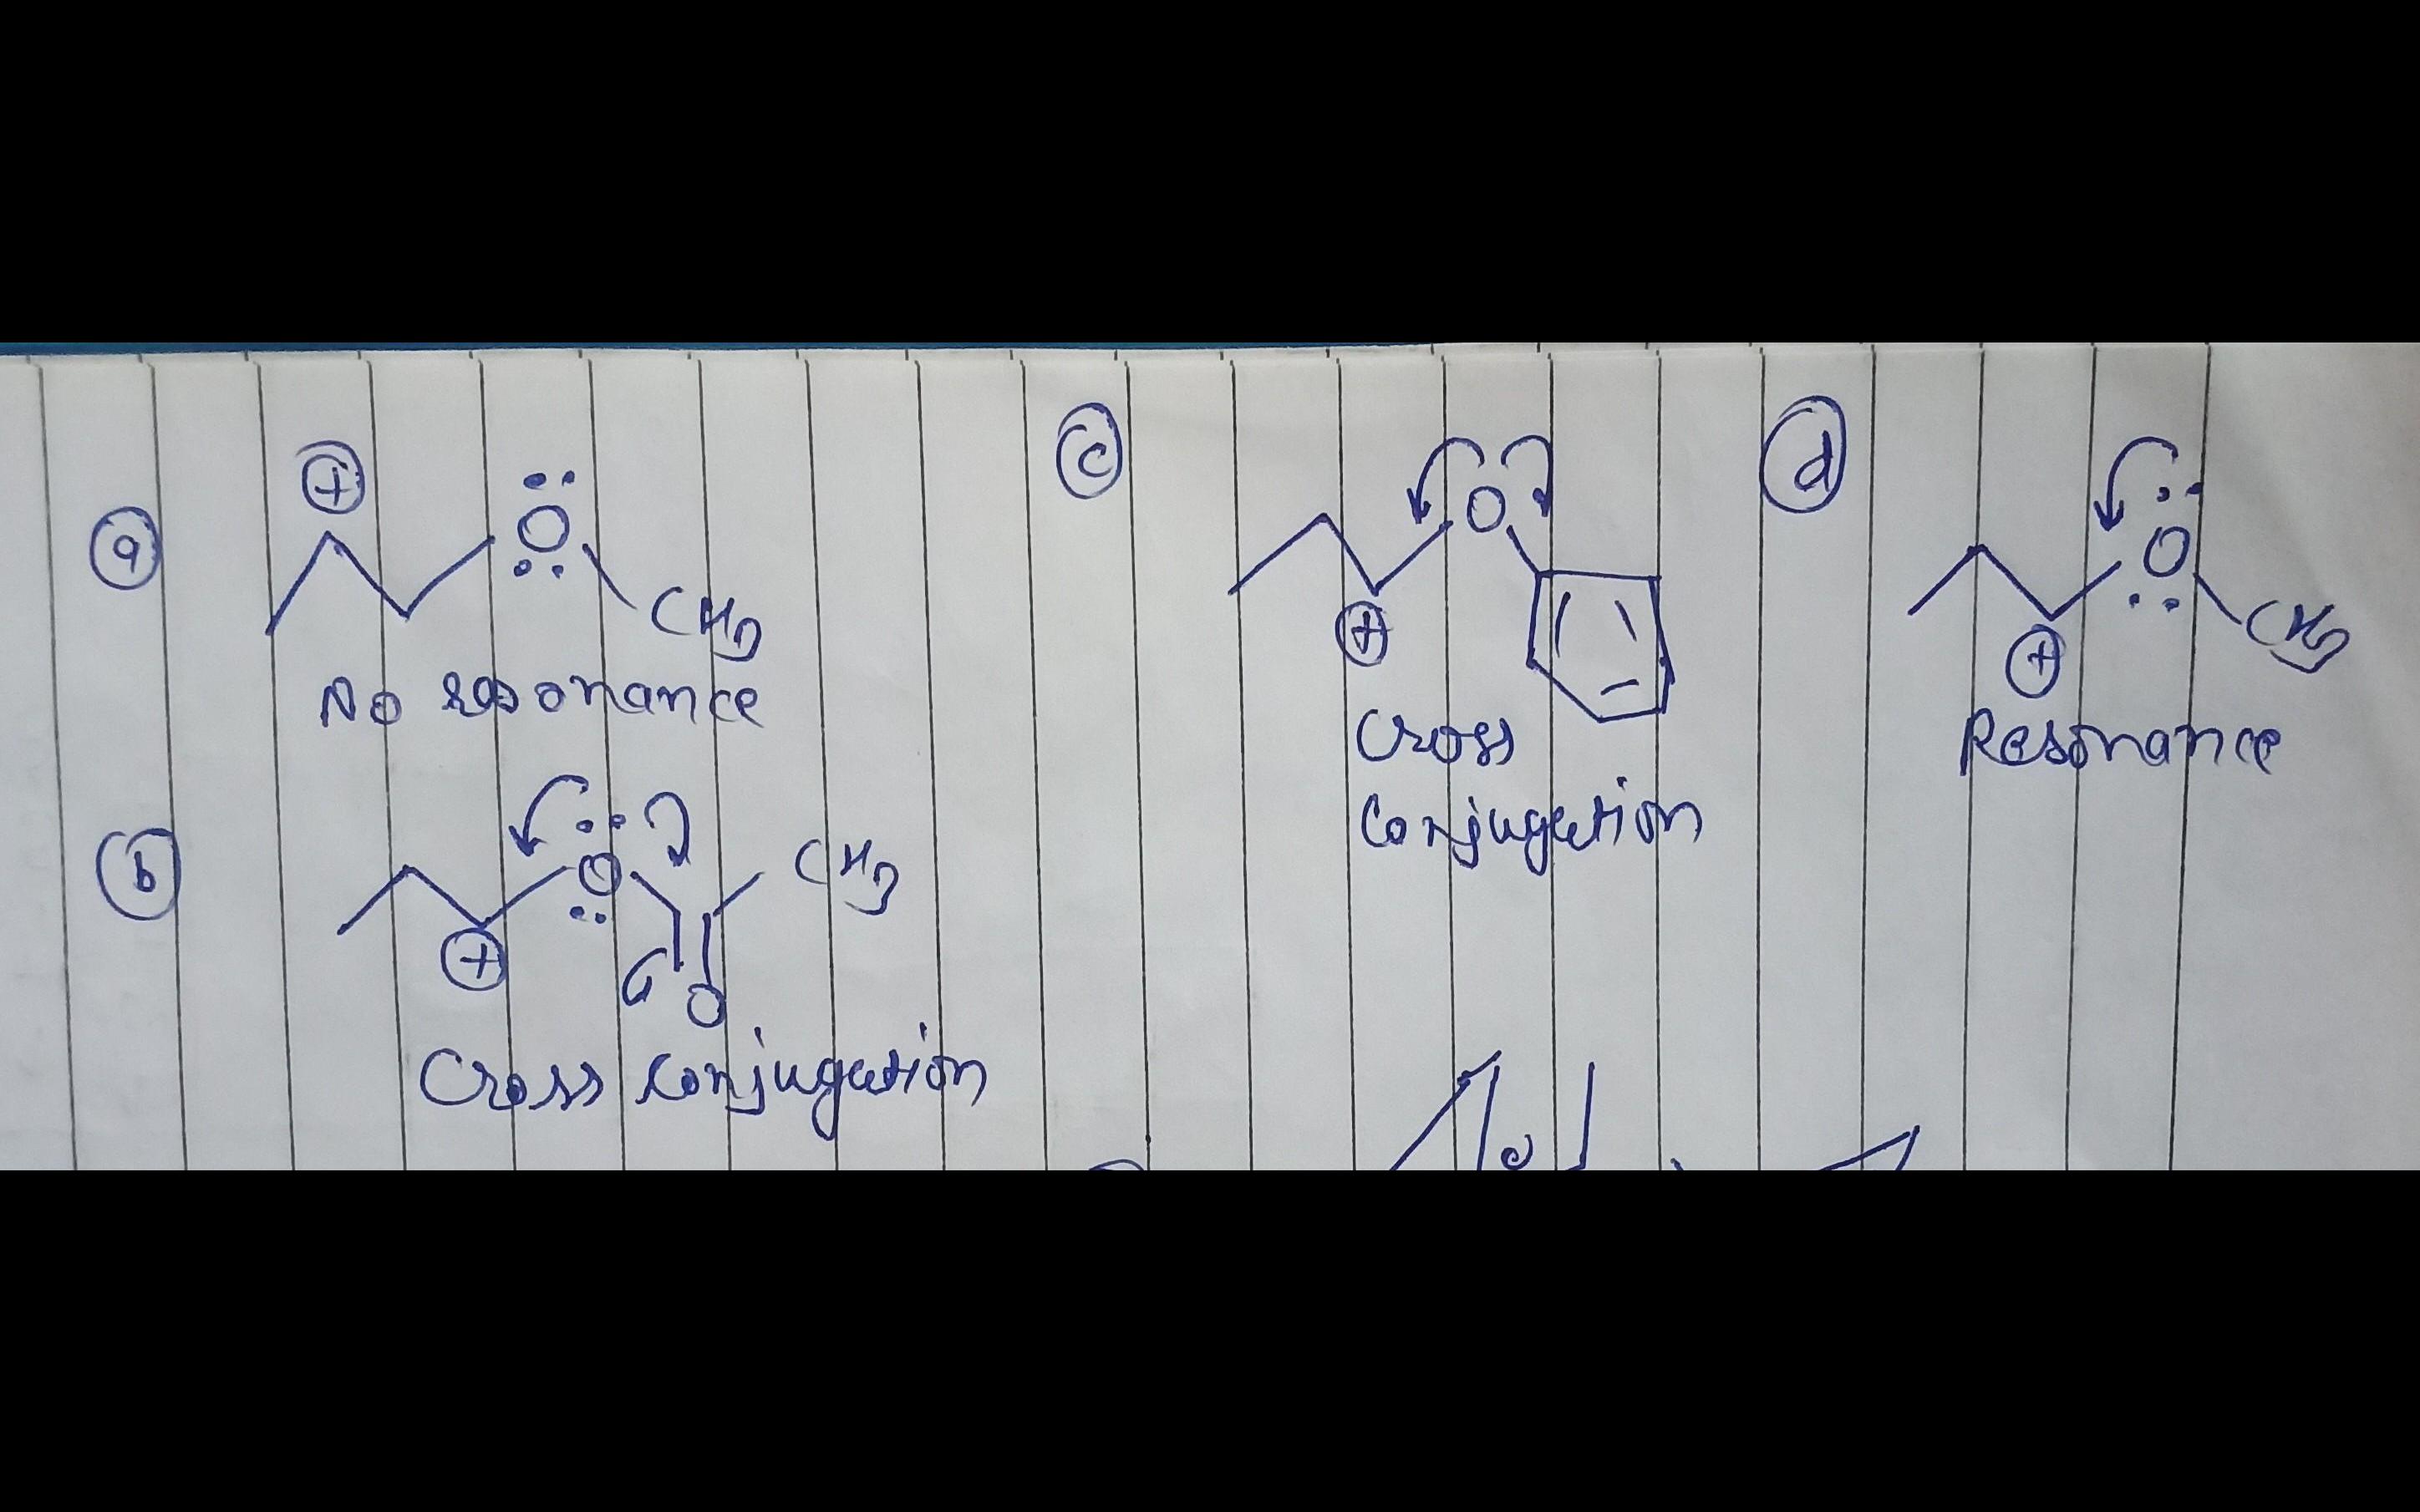 a
+
O
CH3
No resonance
b
+
O
CH3
O
Cross conjugation
c
O
+
Cross
Conjugation
d
O
+
CH3
Resonance